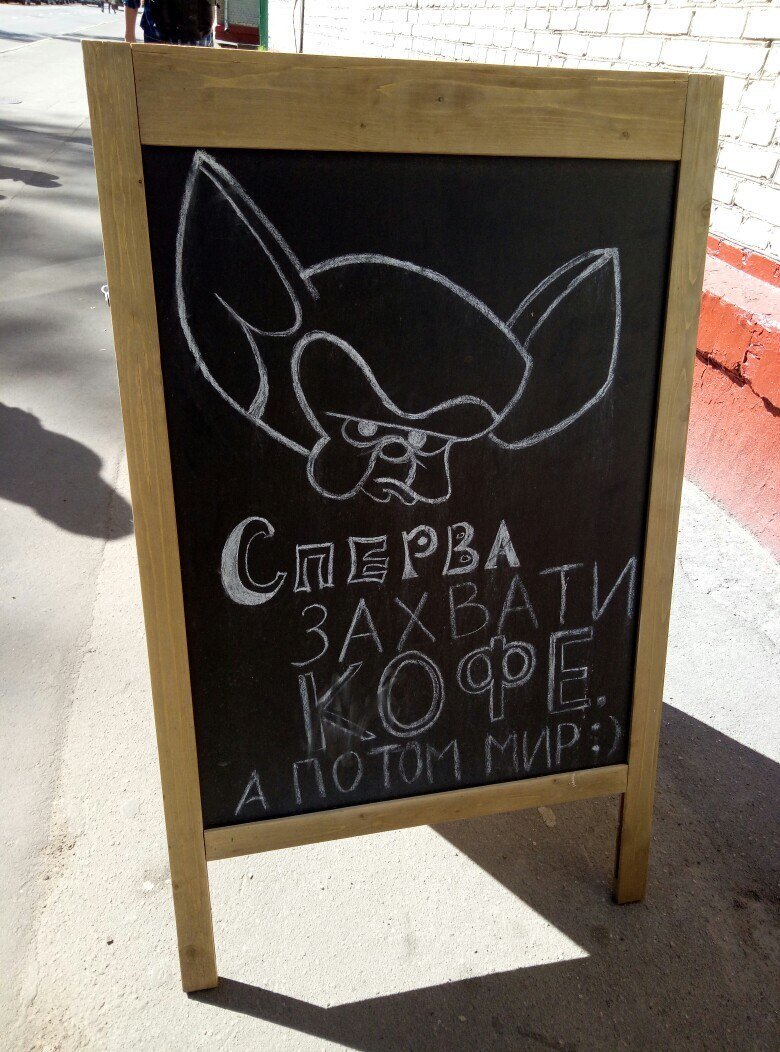 Сперва
захвати
кофе.
а потом мир:)